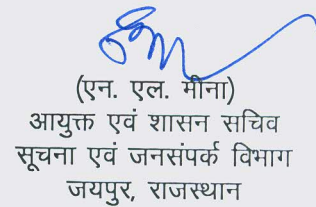 (एन. एल. मीना)
आयुक्त एवं शासन सचिव
सूचना एवं जनसंपर्क विभाग
जयपुर, राजस्थान